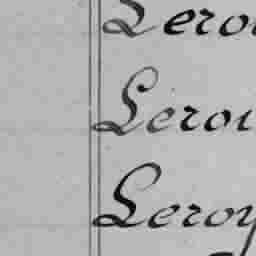 Lerou
Lerou
Leroy